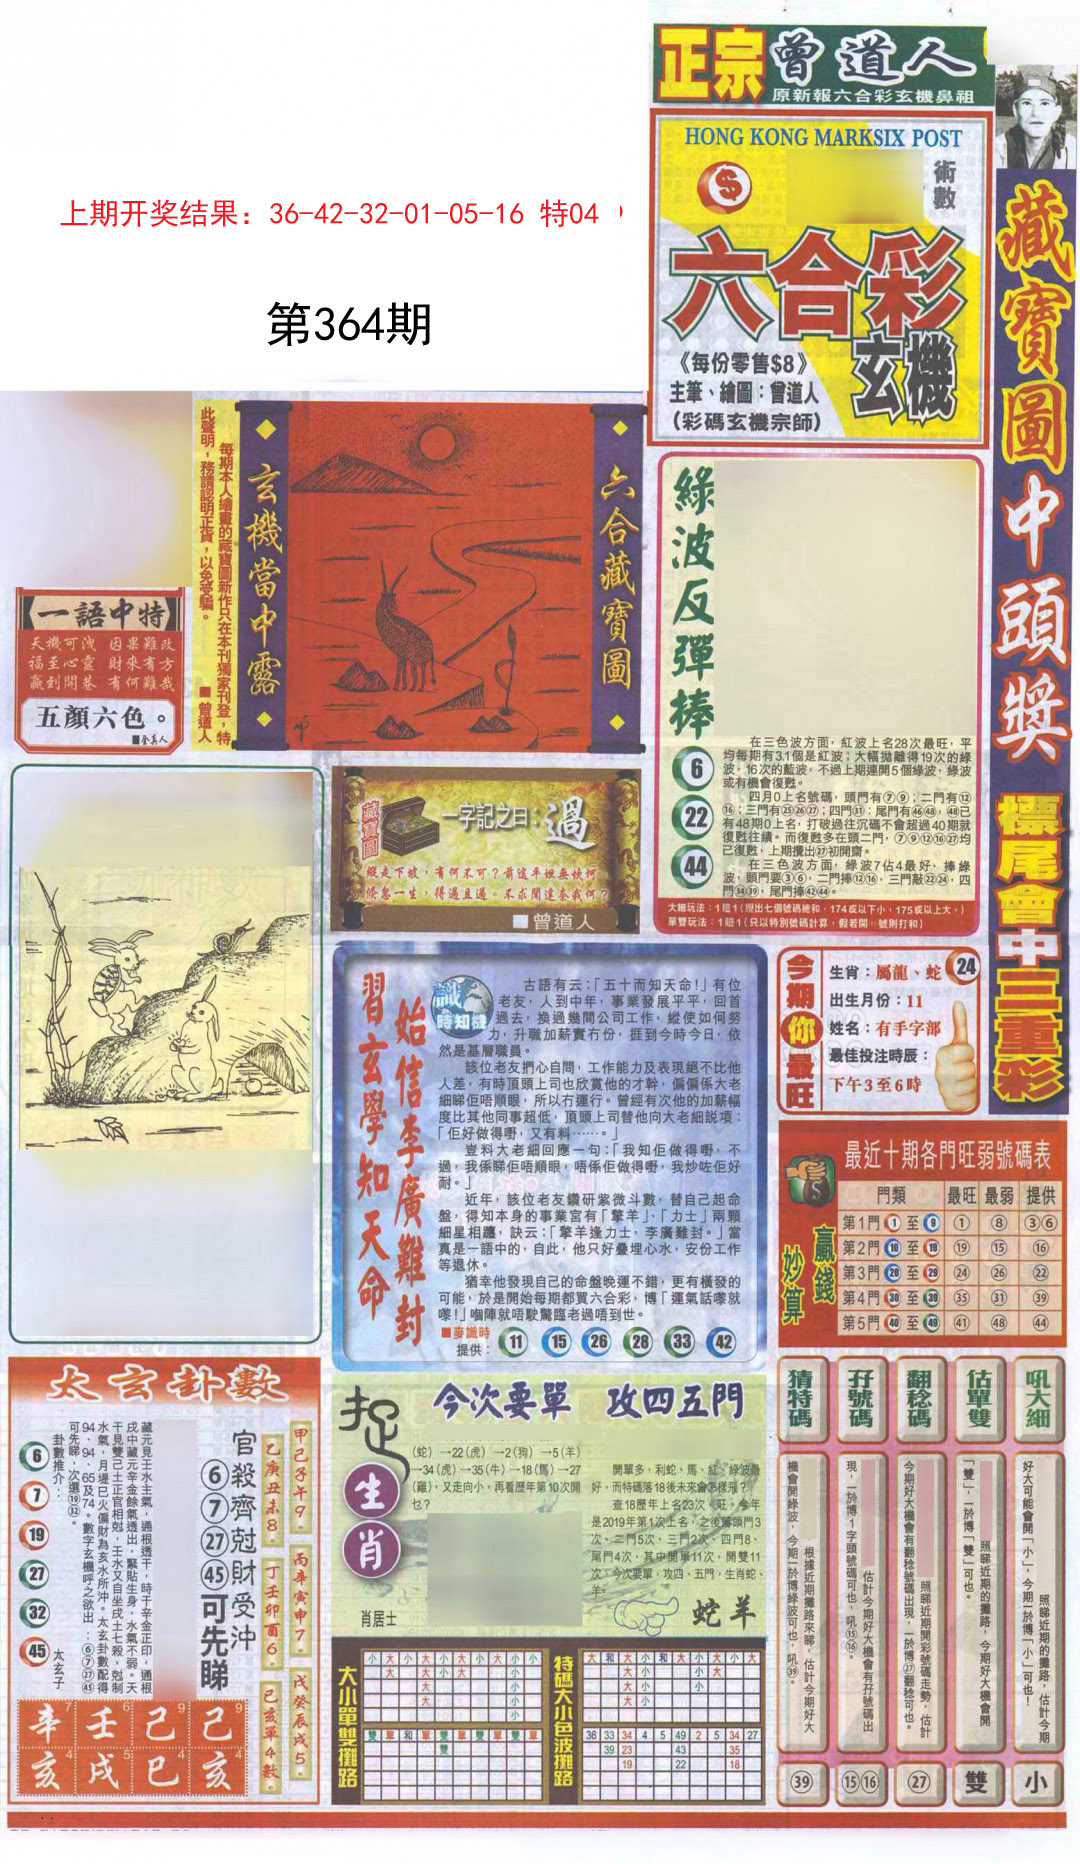 正宗 曾道人
原新報六合彩玄機鼻祖
HONG KONG MARKSIX POST
術數
六合彩
玄機
《每份零售$8》
主筆、繪圖：曾道人
(彩碼玄機宗師)
藏寶圖中頭獎
標尾會中三重彩
上期开奖结果：36-42-32-01-05-16 特04
第364期
每期本人繪畫的藏寶圖新作只在本刊獨家刊登，特
此聲明，務請認明正貨，以免受騙。
■曾道人
六合藏寶圖
玄機當中露
一語中特
天機可洩 因果難改
福至心靈 財來有方
贏到開巷 有何難哉
五顏六色。
綠波反彈棒
6
22
44
在三色波方面，紅波上名28次最旺，平
均每期有3.1個是紅波；大幅拋離得19次的綠
波，16次的藍波，不過上期連開5個綠波，綠波
或有機會復甦。
四月0上名號碼，頭門有⑦⑨；二門有⑫
⑯；三門有㉕㉖㉗；四門㉛；尾門有㊻㊽，㊽已
有48期0上名，打破過往沉碼不會超過40期就
復甦往績。而復甦多在頭二門，⑦⑨⑫⑯㉗均
己復甦，上期攪出㉗初開齋。
在三色波方面，綠波7佔4最好，捧綠
波，頭門要③⑥，二門捧⑫⑯，三門敲㉒㉔，四
門㉞㊴，尾門捧㊷㊹。
大細玩法：1賠1(攪出七個號碼總和，174或以下小，175或以上大。)
單雙玩法：1賠1(只以特別號碼計算，假若開 號則打和)
藏寶圖
一字記之曰：過
縱走下坡，有何不可？前途平坦無坎坷
倏忽一生，得過且過。不求聞達奈我何？
■曾道人
始信李廣難封
習玄學知天命
識時知機
古語有云：「五十而知天命！」有位
老友，人到中年，事業發展平平，回首
過去，換過幾間公司工作，縱使如何勞
力，升職加薪實冇份，捱到今時今日，依
然是基層職員。
該位老友捫心自問，工作能力及表現絕不比他
人差，有時頂頭上司也欣賞他的才幹，偏偏係大老
細睇佢唔順眼，所以冇運行。曾經有次他的加薪幅
度比其他同事超低，頂頭上司替他向大老細説項：
「佢好做得嘢，又有料……。」
豈料大老細回應一句：「我知佢做得嘢，不
過，我係睇佢唔順眼，唔係佢做得嘢，我炒咗佢好
耐。」
近年，該位老友鑽研紫微斗數，替自己起命
盤，得知本身的事業宮有「擎羊」、「力士」兩顆
細星相躔，訣云：「擎羊逢力士，李廣難封。」當
真是一語中的，自此，他只好疊埋心水，安份工作
等退休。
猶幸他發現自己的命盤晚運不錯，更有橫發的
可能，於是開始每期都買六合彩，博「運氣話嚟就
嚟！」嗰陣就唔駛驚臨老過唔到世。
■麥識時
提供： 11 15 26 28 33 42
今期你最旺
生肖：屬龍、蛇 24
出生月份：11
姓名：有手字部
最佳投注時辰：
下午3至6時
最近十期各門旺弱號碼表
贏錢妙算
門類 最旺 最弱 提供
第1門 1 至 9 ① ⑧ ③⑥
第2門 10 至 19 ⑲ ⑮ ⑯
第3門 20 至 29 ㉔ ㉖ ㉒
第4門 30 至 39 ㉟ ㉛ ㊴
第5門 40 至 49 ㊶ ㊽ ㊹
太玄卦數
甲己子午9。
乙庚丑未8。
丙辛寅申7。
丁壬卯酉6。
戊癸辰戌5。
己亥單4數。
官殺齊尅財受沖
⑥⑦㉗㊺可先睇
藏元見壬水主氣，通根透干，時干辛金正印，通根
戌中藏元辛金餘氣透出，緊貼生身，水氣不弱。天
干見雙己土正官相尅，壬水又自坐戌土七殺，尅制
水氣，月堤巳火偏財為亥水所沖。太玄卦數配得
94、94、65及74。數字玄機呼之欲出：⑥⑦㉗㊺
可先睇，次選⑲㉜。
卦數推介：
6
7
19
27
32
45
太玄子
辛7 壬6 己9 己9
亥4 戌5 巳4 亥4
捉生肖
今次要單 攻四五門
(蛇)→22(虎)→2(狗)→5(羊)
→34(虎)→35(牛)→18(馬)→27
(雞)，又走向小，再看歷年第10次開
乜？
開單多，利蛇、馬，紅、綠波最
好，而特碼落18後未來會怎樣飛？
查18歷年上名23次，旺。今年
是2019年第1次上名，之後落頭門3
次、二門5次、三門2次、四門8、
尾門4次，其中開單11次，開雙11
次。今次要單，攻四、五門，生肖蛇、
羊。
肖居士
蛇羊
大小單雙攤路
小 大 小 大 小 大 小 大 小
雙 單 和 單 雙 單 雙 單 雙 單
特碼大小色波攤路
大 和 大 小 小 大 小 大
36 33 34 4 5 49 2 5 34 27
39 23 43 35
19 22 18
猜特碼
根據近期攤路來睇，估計今期好大
機會開綠波，今期一於博綠波可也，吼㊴。
㊴
孖號碼
估計今期好大機會有孖號碼出
現，一於博1字頭號碼可也，吼⑮⑯。
⑮⑯
翻稔碼
照睇近期開彩號碼走勢，估計
今期好大機會有翻稔號碼出現，一於博㉗翻稔可也。
㉗
估單雙
照睇近期的攤路，今期好大機會開
「雙」，一於博「雙」可也。
雙
吼大細
照睇近期的攤路，估計今期
好大可能會開「小」，今期一於博「小」可也！
小